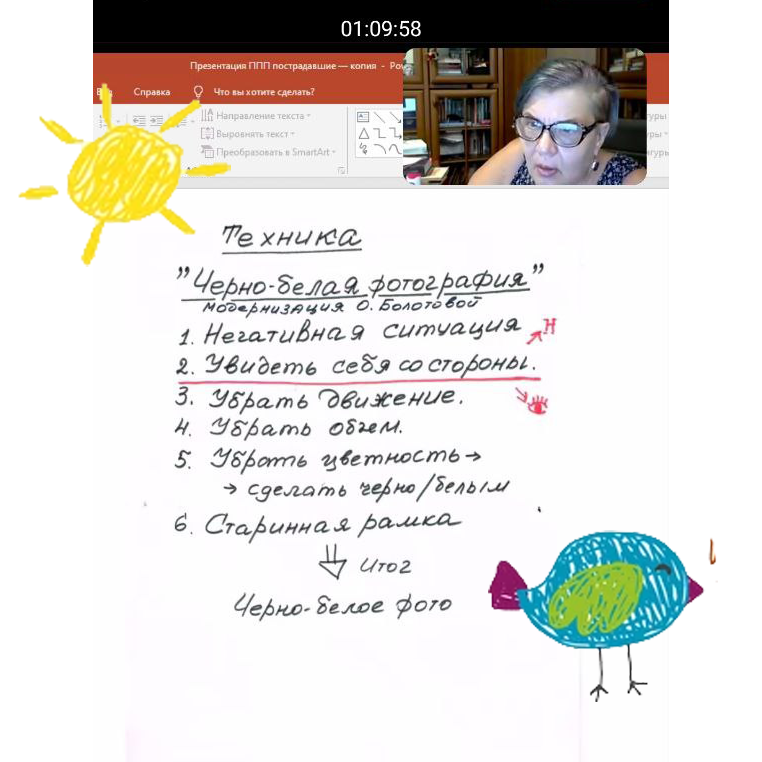 01:09:58
Презентация ППП пострадавшие — копия - Po
Справка
Что вы хотите сделать?
Направление текста
Выровнять текст
Преобразовать в SmartArt
Техника
"Черно-белая фотография"
модернизация О. Болотовой
1. Негативная ситуация Н
2. Увидеть себя со стороны.
3. Убрать движение.
4. Убрать объем.
5. Убрать цветность →
→ сделать черно/белым
6. Старинная рамка
Итог
Черно-белое фото